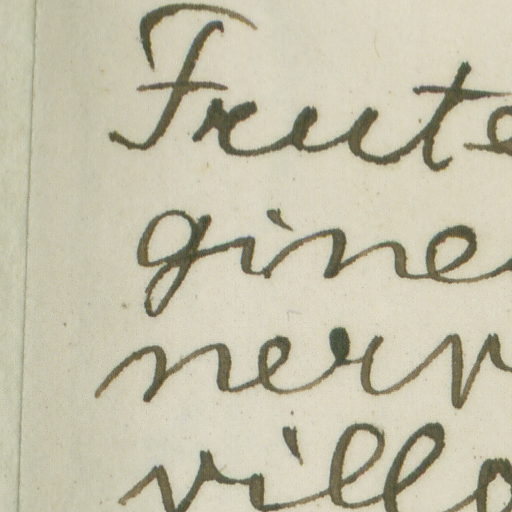 Frute
gine
nerv
villo